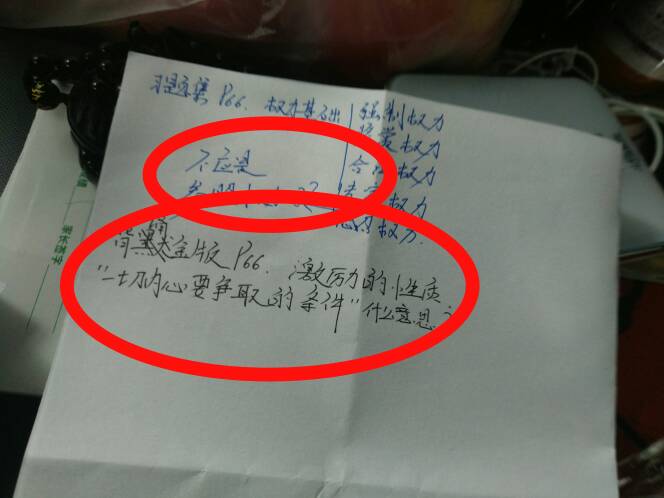 习题集 P66. 权力基础 强制权力
奖赏权力
不应是 合法权力
权力
权力.
背诵 版 P66. 激励的性质
"一切内心要争取的条件"什么意思?
家长签字